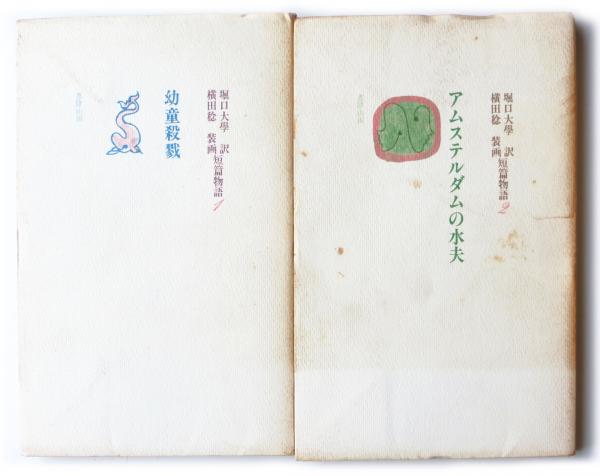 堀口大學 訳
横田稔 装画
短篇物語
1
幼童殺戮
堀口大學 訳
横田稔 装画
短篇物語
2
アムステルダムの水夫